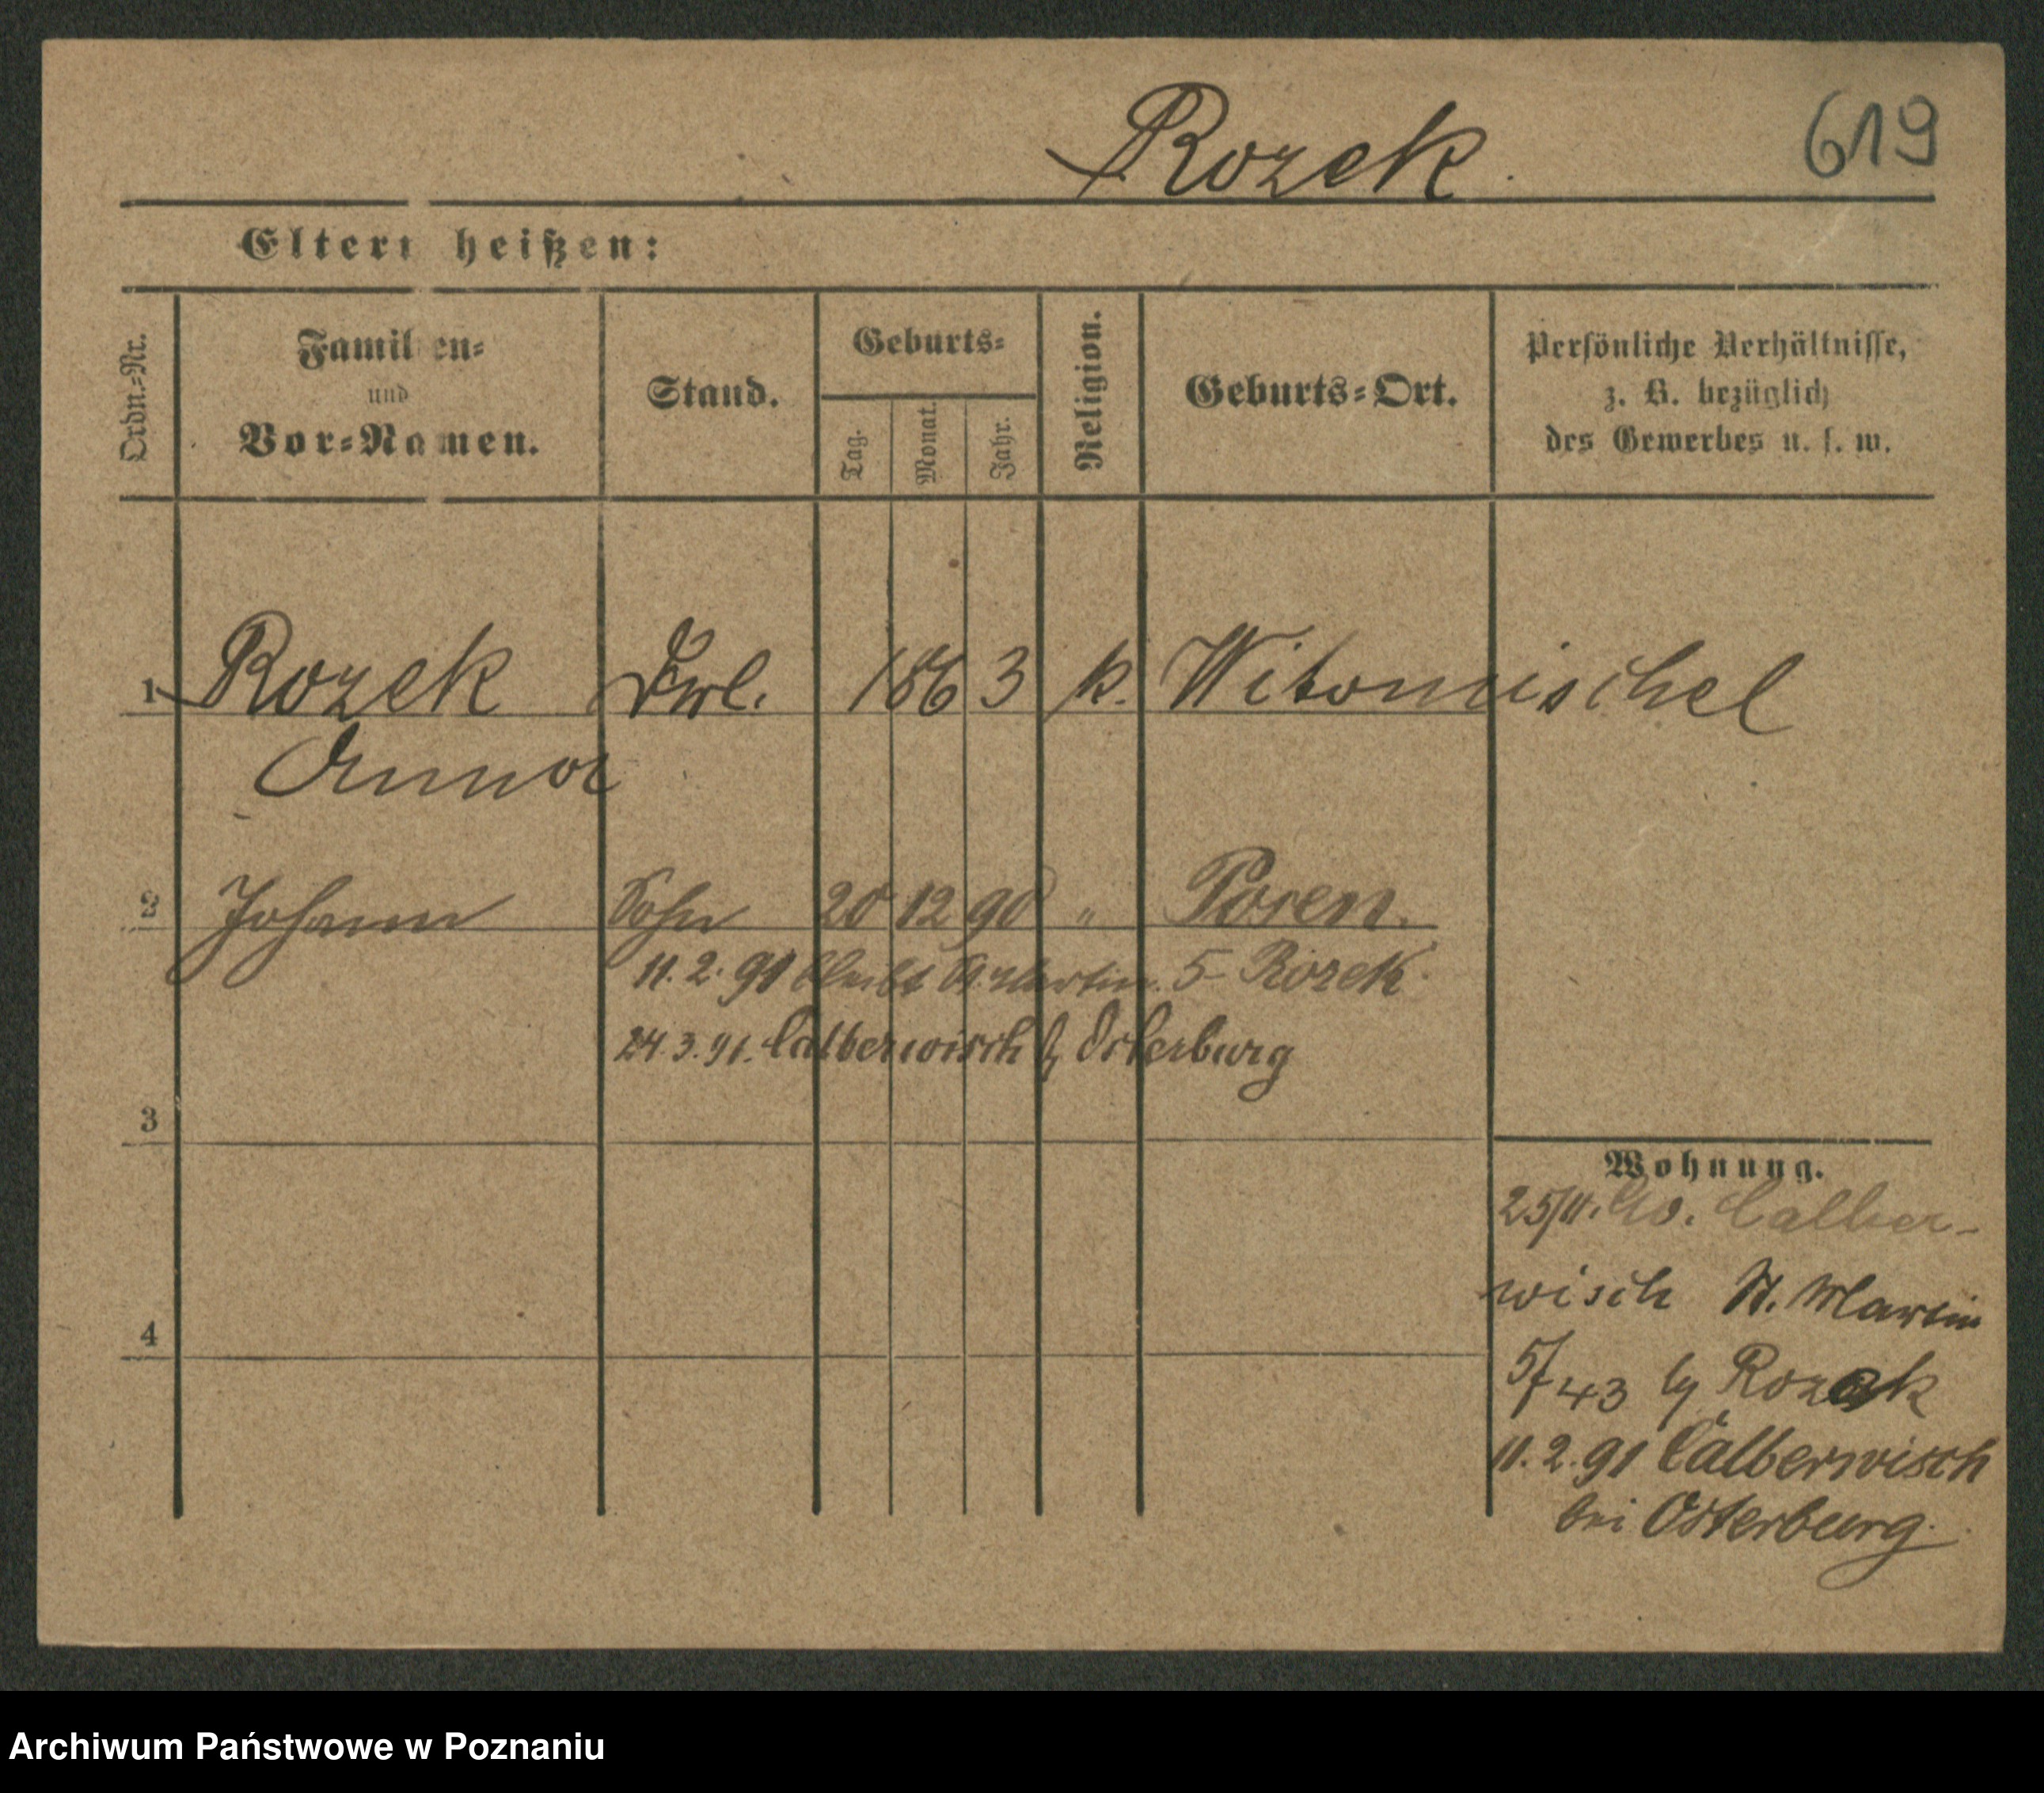 Rozek.
619
Eltern heißen:
Ordn.-Nr.
Familien-
und
Vor-Namen.
Stand.
Geburts-
Tag.
Monat.
Jahr.
Religion.
Geburts-Ort.
Persönliche Verhältnisse,
z. B. bezüglich
des Gewerbes u. s. w.
1 Rozek 1863 k. Witomischel
Anna
2 Johann Sohn 20 12 90 " Posen.
11. 2. 91 bleibt St. Martin. 5 Rozek.
24. 3. 91. Calberwisch b Osterburg
3
4
Wohnung.
25/11. 90. Calber-
wisch St. Martin
5/43 by Rozek
11. 2. 91 Calberwisch
bei Osterburg.
Archiwum Państwowe w Poznaniu